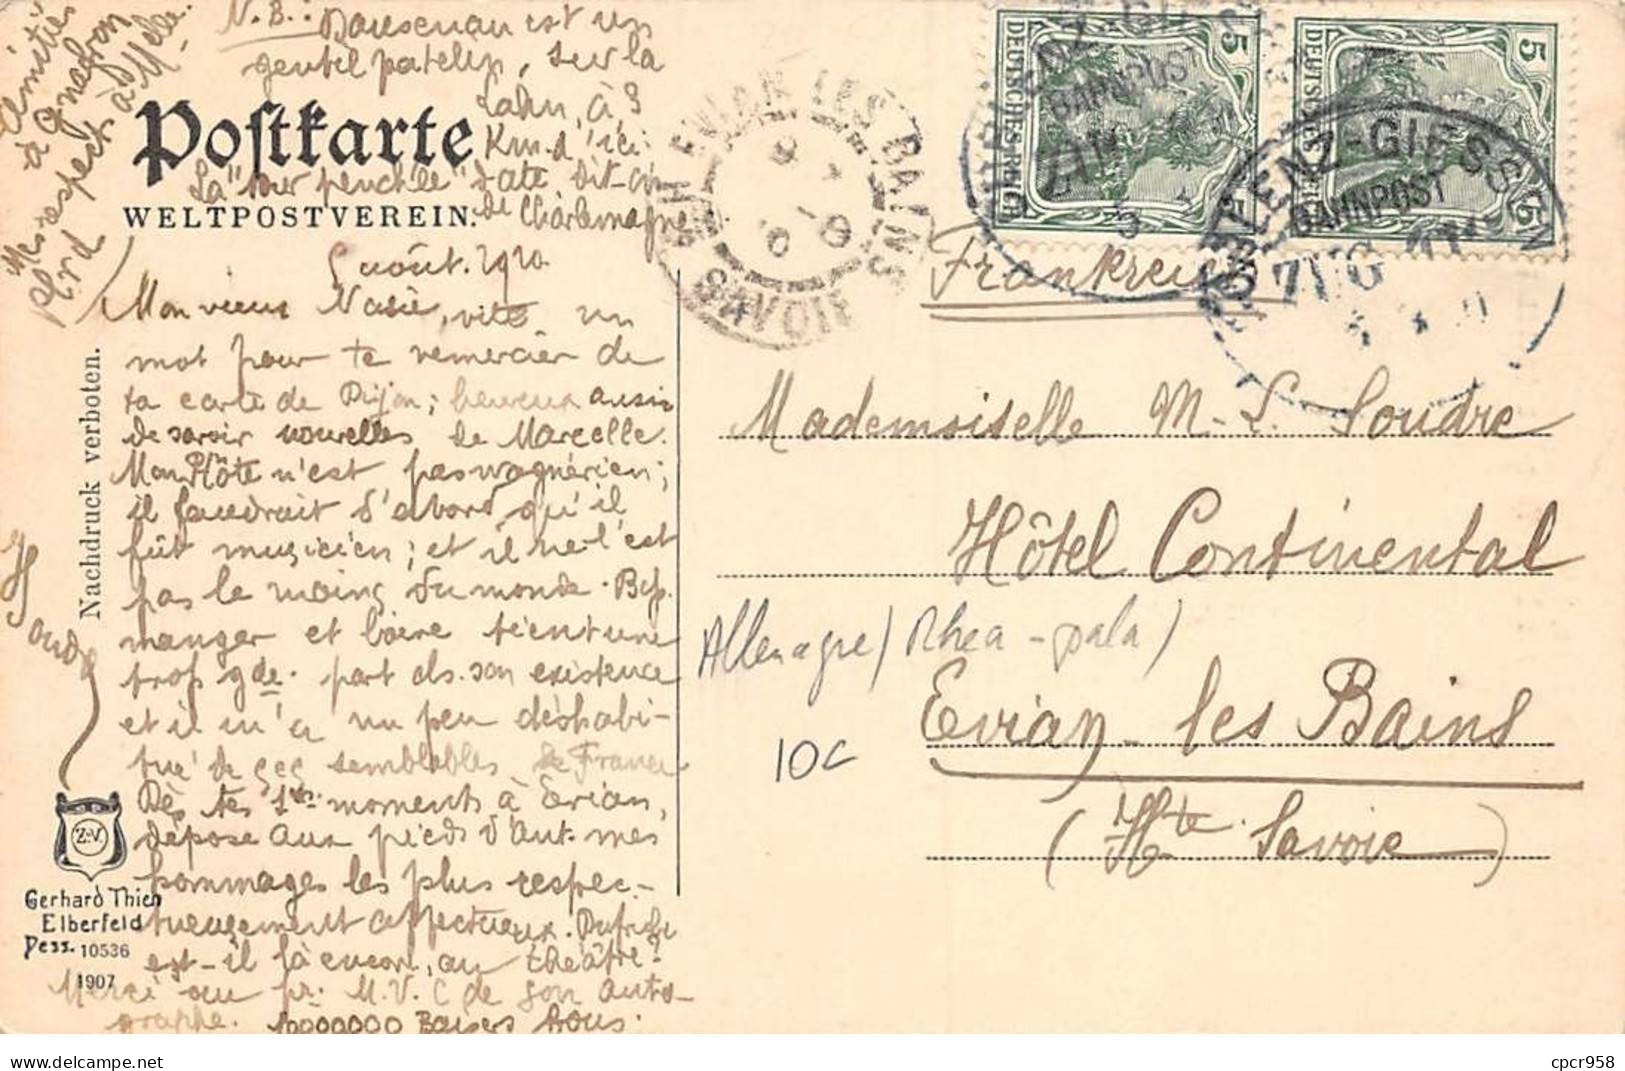 N.B.: Dausenau est un
gentil patelin, sur la
Lahn, à 3
Km. d'ici.
La "tour penchée" date, dit-on
de Charlemagne
Amitiés
à Gnafron
Mes respects à Melle
Postkarte
WELTPOSTVEREIN.
5 août. 1910
Mon vieux Nasie, vite un
mot pour te remercier de
ta carte de Dijon; heureux aussi
de savoir nouvelles de Marcelle.
Mon Hôte n'est pas wagnérien;
il faudrait d'abord qu'il
fût musicien; et il ne l'est
pas le moins du monde. Bcp.
manger et boire tient une
trop gde. part ds. son existence
et il m'a un peu déshabi-
tué de ses semblables de France
Dès tes 1ers. moments à Evian,
dépose aux pieds d'Aut. mes
hommages les plus respec-
tueusement affectueux.
est-il là encore, au théâtre?
Merci au pr. M.V.C de son auto-
graphe. 10000000 Baisers tous.
Nachdruck verboten.
Z.V.
Gerhard Thien
Elberfeld
Dess. 10536
1907
EVIAN LES BAINS
HTE SAVOIE
DEUTSCHES REICH
5
5
DEUTSCHES REICH
5
5
COBLENZ-GIESSEN
BAHNPOST
ZUG
COBLENZ-GIESSEN
BAHNPOST
ZUG
Frankreich
Mademoiselle M.-L. Soudre
Hôtel Continental
Allemagne/ Rhea-pala)
Evian-les Bains
10c
(Hte. Savoie)
cpcr958